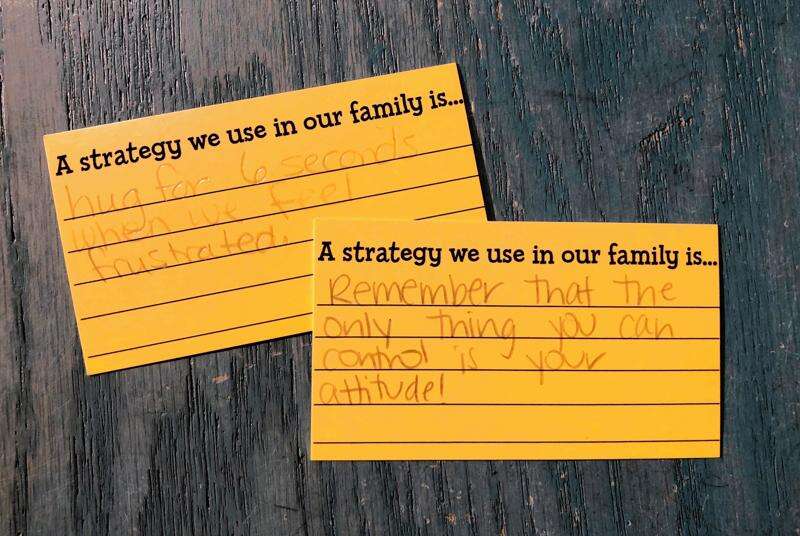 A strategy we use in our family is...
hug for 6 seconds
when we feel
frustrated.
A strategy we use in our family is...
Remember that the
only thing you can
control is your
attitude!